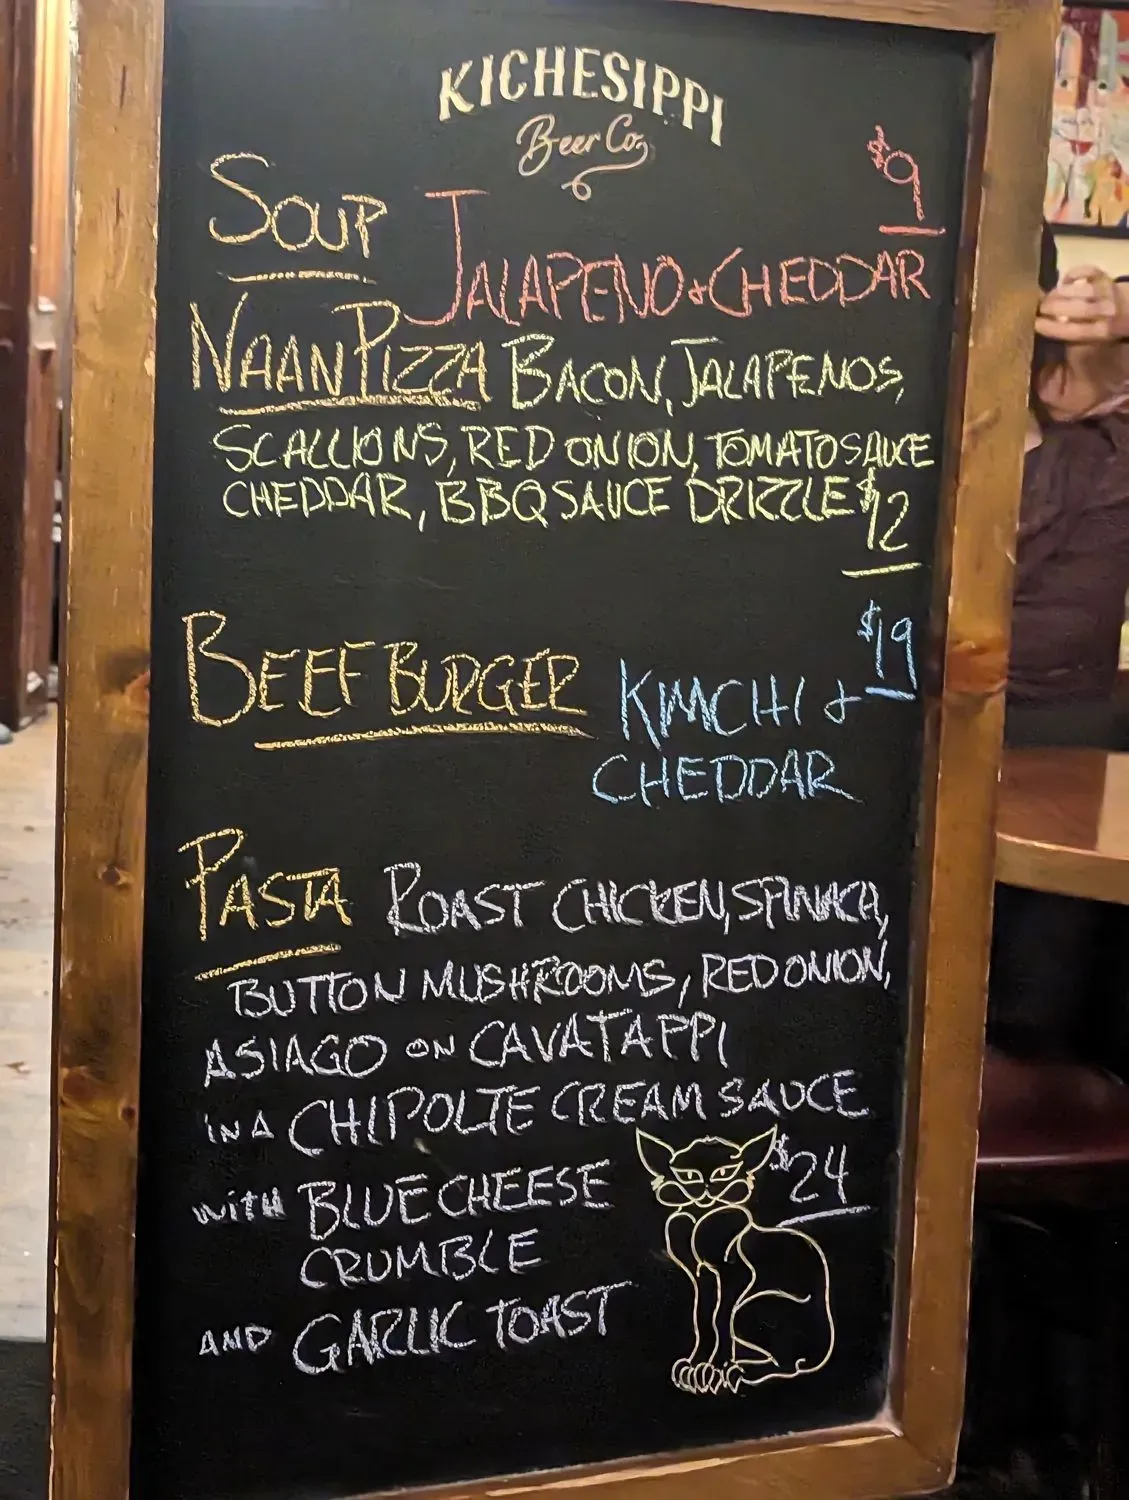 KICHESIPPI
Beer Co.
$9
SOUP JALAPENO & CHEDDAR
NAAN PIZZA BACON, JALAPENOS,
SCALLIONS, RED ONION, TOMATO SAUCE
CHEDDAR, BBQ SAUCE DRIZZLE $12
$19
BEEF BURGER KIMCHI &
CHEDDAR
PASTA ROAST CHICKEN, SPINACH,
BUTTON MUSHROOMS, RED ONION,
ASIAGO ON CAVATAPPI
IN A CHIPOLTE CREAM SAUCE
$24
WITH BLUE CHEESE
CRUMBLE
AND GARLIC TOAST